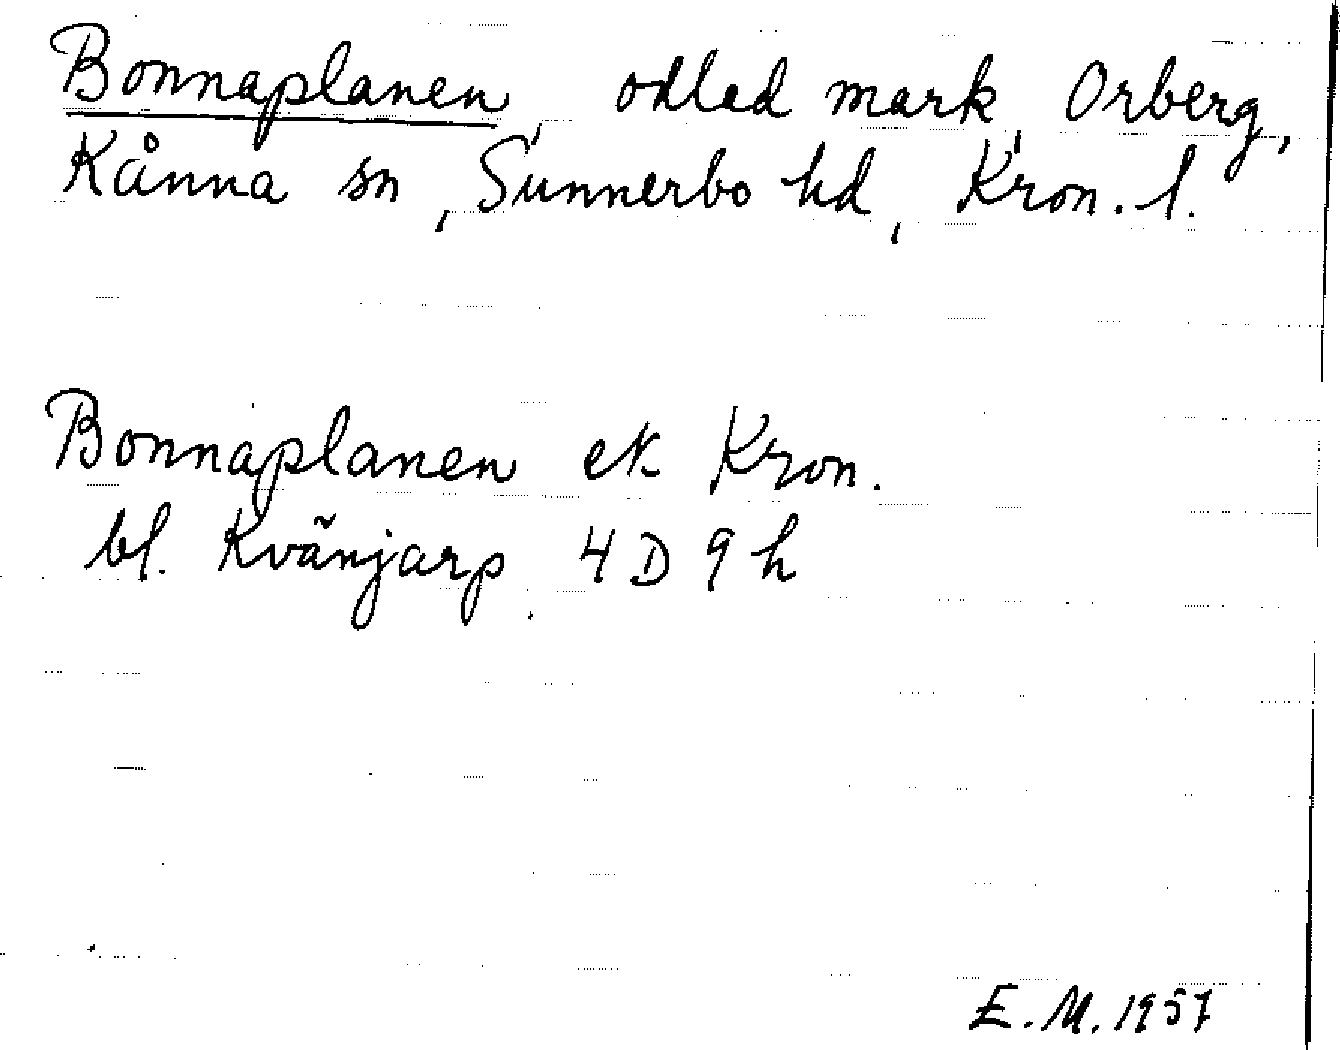 Bonnaplanen, odlad mark, Orberg,
Kånna sn, Sunnerbo hd, Kron. l.
Bonnaplanen ek Kron.
bl. Kvänjarp 4 D 9 h
E. M. 1957